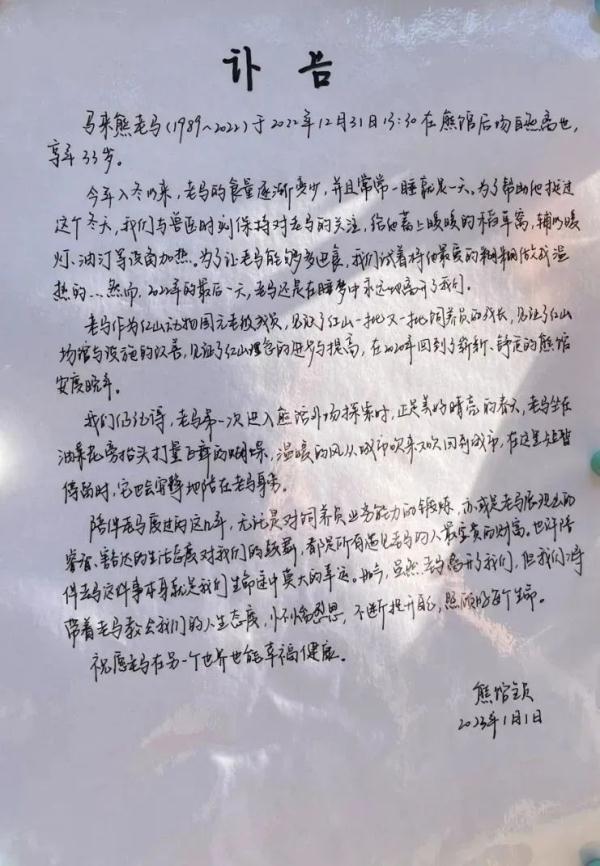 讣告
马来熊老马(1989~2022)于2022年12月31日13:30在熊馆后场自然离世,
享年33岁。
今年入冬以来,老马的食量逐渐变少,并且常常一睡就是一天。为了帮助他挺过
这个冬天,我们与兽医时刻保持对老马的关注,给他盖上暖暖的稻草窝,辅以暖
灯、油汀等设备加热。为了让老马能够多进食,我们试着将他最爱的糊糊做成温
热的...然而,2022年的最后一天,老马还是在睡梦中永远地离开了我们。
老马作为红山动物园元老级成员,见证了红山一批又一批饲养员的成长,见证了红山
场馆与设施的改善,见证了红山理念的进步与提高,在2020年回到了崭新、舒适的熊馆
安度晚年。
我们仍记得,老马第一次进入熊馆外场探索时,正是美好晴亮的春天,老马坐在
油菜花旁抬头打量飞舞的蝴蝶,温暖的风从城市吹来又吹回到城市,在这里短暂
停留时,它也会安静地陪在老马身旁。
陪伴老马度过的这几年,无论是对饲养员业务能力的锻炼,亦或是老马展现出的
睿智、豁达的生活态度对我们的鼓舞,都是所有遇见老马的人最宝贵的财富。也许陪
伴老马这件事本身就是我们生命途中莫大的幸运。如今,虽然老马离开了我们,但我们会将
带着老马教会我们的人生态度,怀揣恩思,不断提升自己,照顾好每个生命。
祝愿老马在另一个世界也能幸福健康。
熊馆全员
2023年1月1日